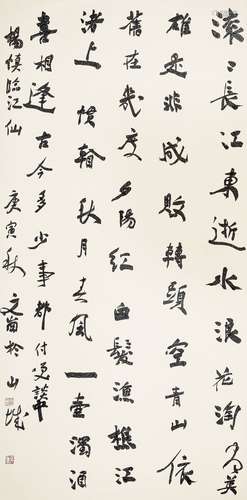 滚〻长江东逝水浪花淘尽英
雄是非成败转头空青山依
旧在几度夕阳红白发渔樵江
渚上惯看秋月春风一壶浊酒
喜相逢古今多少事都付笑谈中
杨慎临江仙 庚寅秋 文 於山城